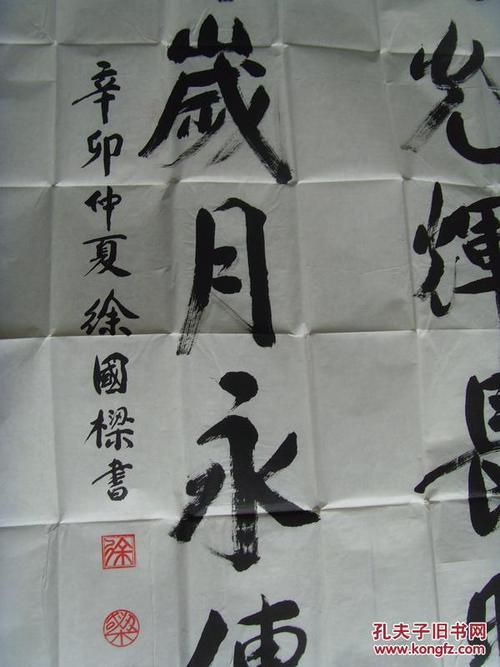 光輝長明
歲月永傳
辛卯仲夏徐國樑書
徐
樑
孔夫子旧书网
www.kongfz.com